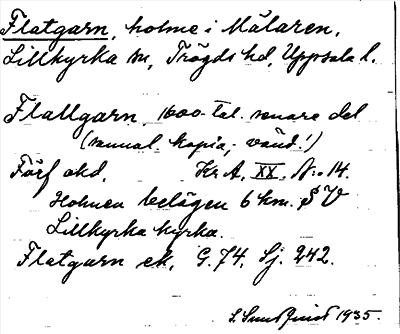 Flatgarn, holme i Mälaren,
Lillkyrka sn, Trögds hd, Uppsala l.
Flallgarn, 1600-tal. senare del
(manual kopia; vänd!)
Förf okd. Kr. A. XX. N:o 14.
Holmen belägen 6 km. SV
Lillkyrka kyrka.
Flatgarn ek. G. 74. Sj. 242.
S. Sundquist 1935.